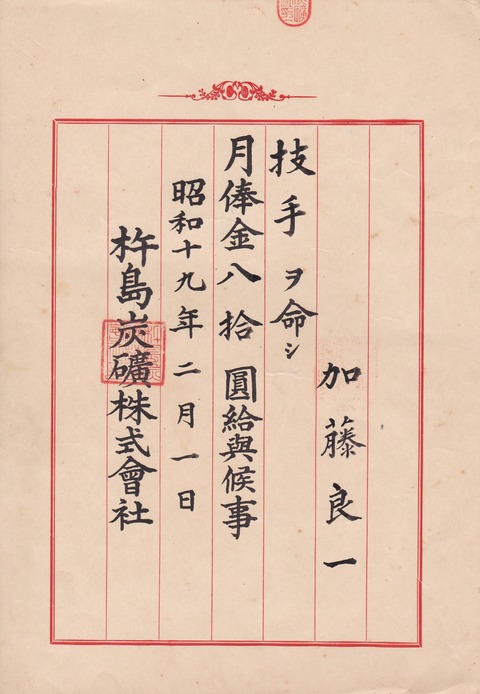 加藤良一
技手ヲ命シ
月俸金八拾圓給與候事
昭和十九年二月一日
杵島炭礦株式會社